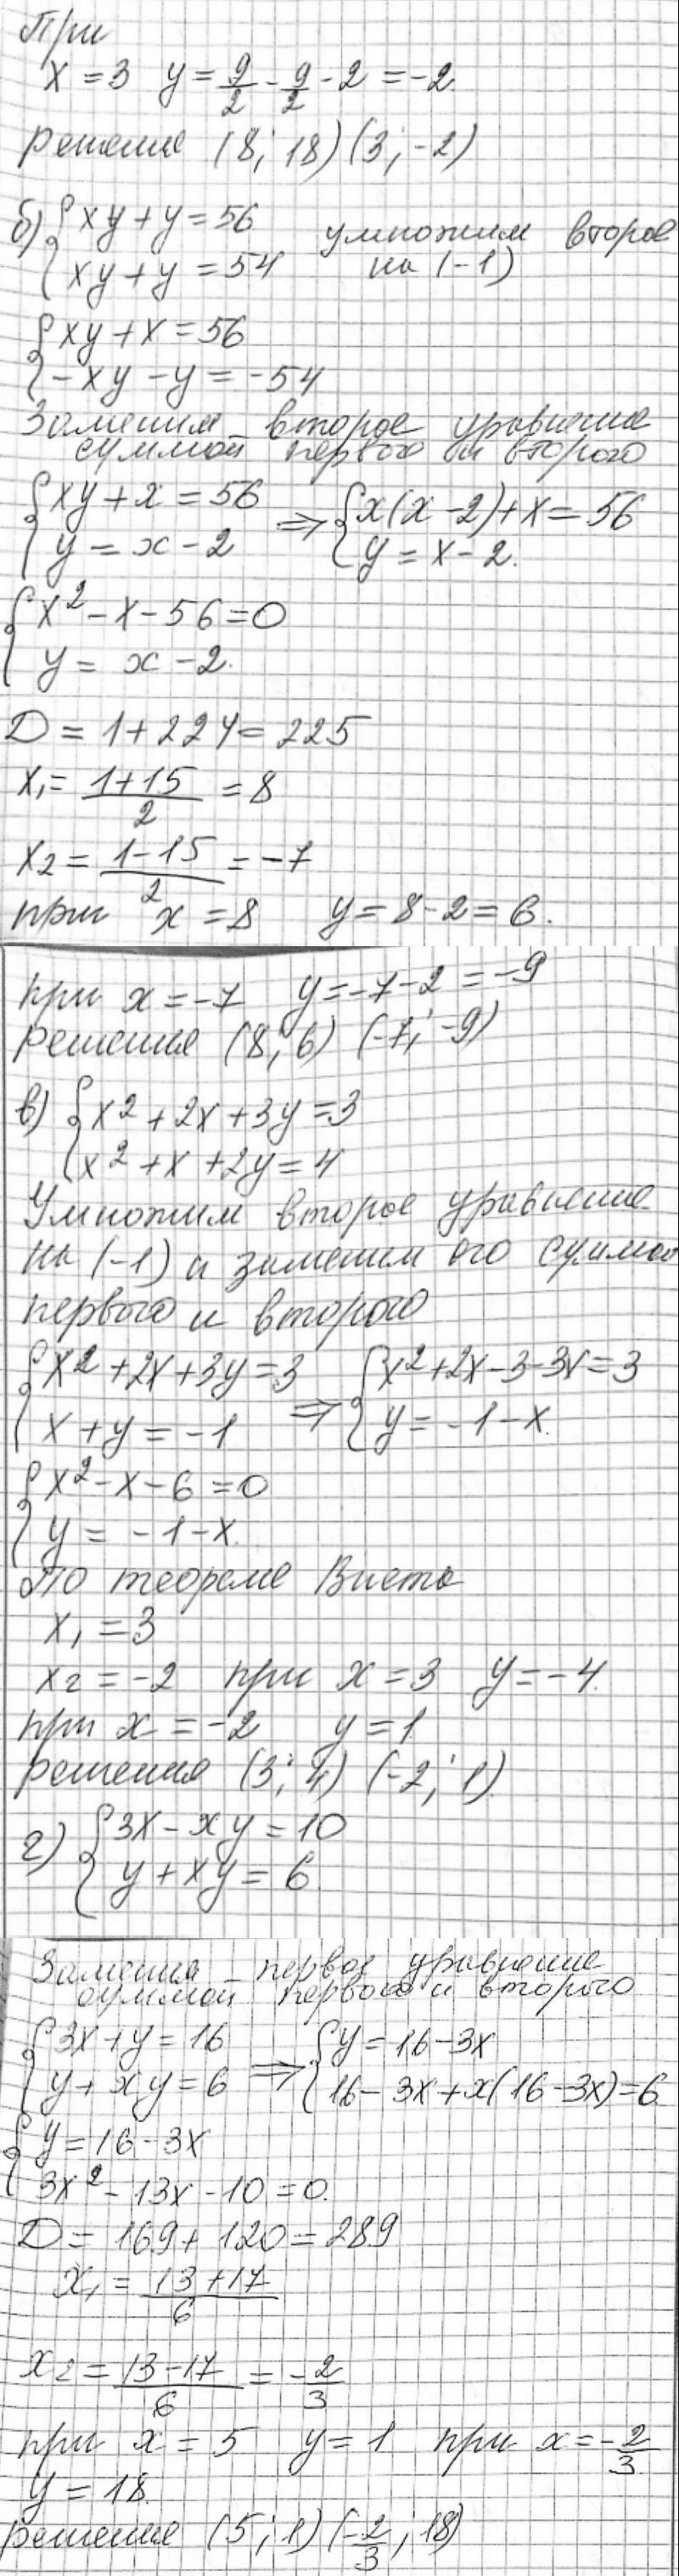 При
x = 3 y = 9/2 - 9/2 - 2 = -2.
решения (8; 18) (3; -2)
б) { xy + y = 56 умножим второе
{ xy + y = 54 на (-1)
{ xy + x = 56
{ -xy - y = -54
Заменим второе уравнение
суммой первого и второго
{ xy + x = 56 ⇒ { x(x - 2) + x = 56
{ y = x - 2 { y = x - 2.
{ x² - x - 56 = 0
{ y = x - 2.
D = 1 + 224 = 225
x₁ = (1 + 15)/2 = 8
x₂ = (1 - 15)/2 = -7
при x = 8 y = 8 - 2 = 6.
при x = -7 y = -7 - 2 = -9
решения (8; 6) (-7; -9)
в) { x² + 2x + 3y = 3
{ x² + x + 2y = 4
Умножим второе уравнение
на (-1) и заменим его суммой
первого и второго
{ x² + 2x + 3y = 3 ⇒ { x² + 2x - 3 - 3x = 3
{ x + y = -1 { y = -1 - x.
{ x² - x - 6 = 0
{ y = -1 - x.
по теореме Виета
x₁ = 3
x₂ = -2 при x = 3 y = -4.
при x = -2 y = 1
решения (3; 4) (-2; 1).
г) { 3x - xy = 10
{ y + xy = 6.
Заменим первое уравнение
суммой первого и второго
{ 3x + y = 16 ⇒ { y = 16 - 3x
{ y + xy = 6 { 16 - 3x + x(16 - 3x) = 6
{ y = 16 - 3x
{ 3x² - 13x - 10 = 0.
D = 169 + 120 = 289
x₁ = (13 + 17)/6
x₂ = (13 - 17)/6 = -2/3
при x = 5 y = 1 при x = -2/3
y = 18.
решения (5; 1) (-2/3; 18)